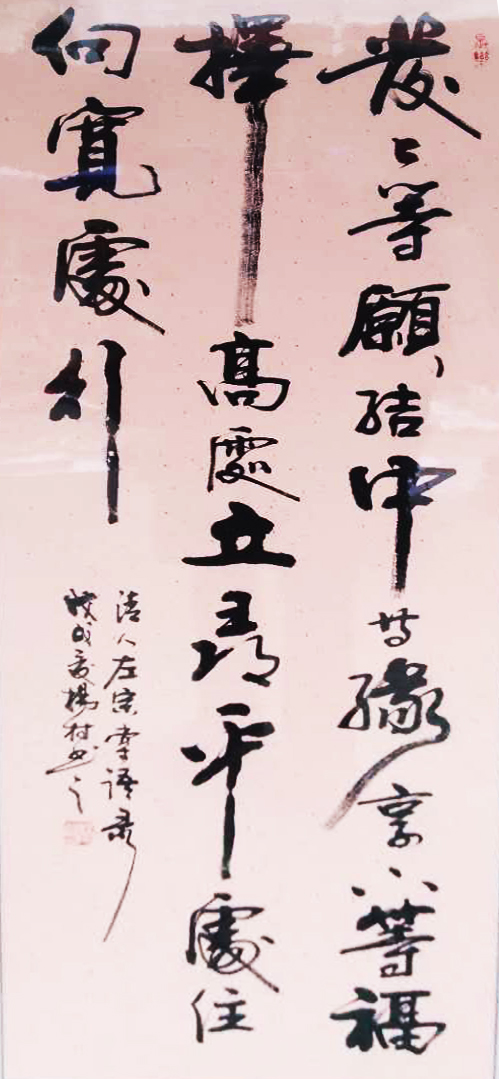 發上等願結中等緣享下等福
擇高處立尋平處住
向寬處行
清人左宗棠語錄
戊戌夏楊村书之